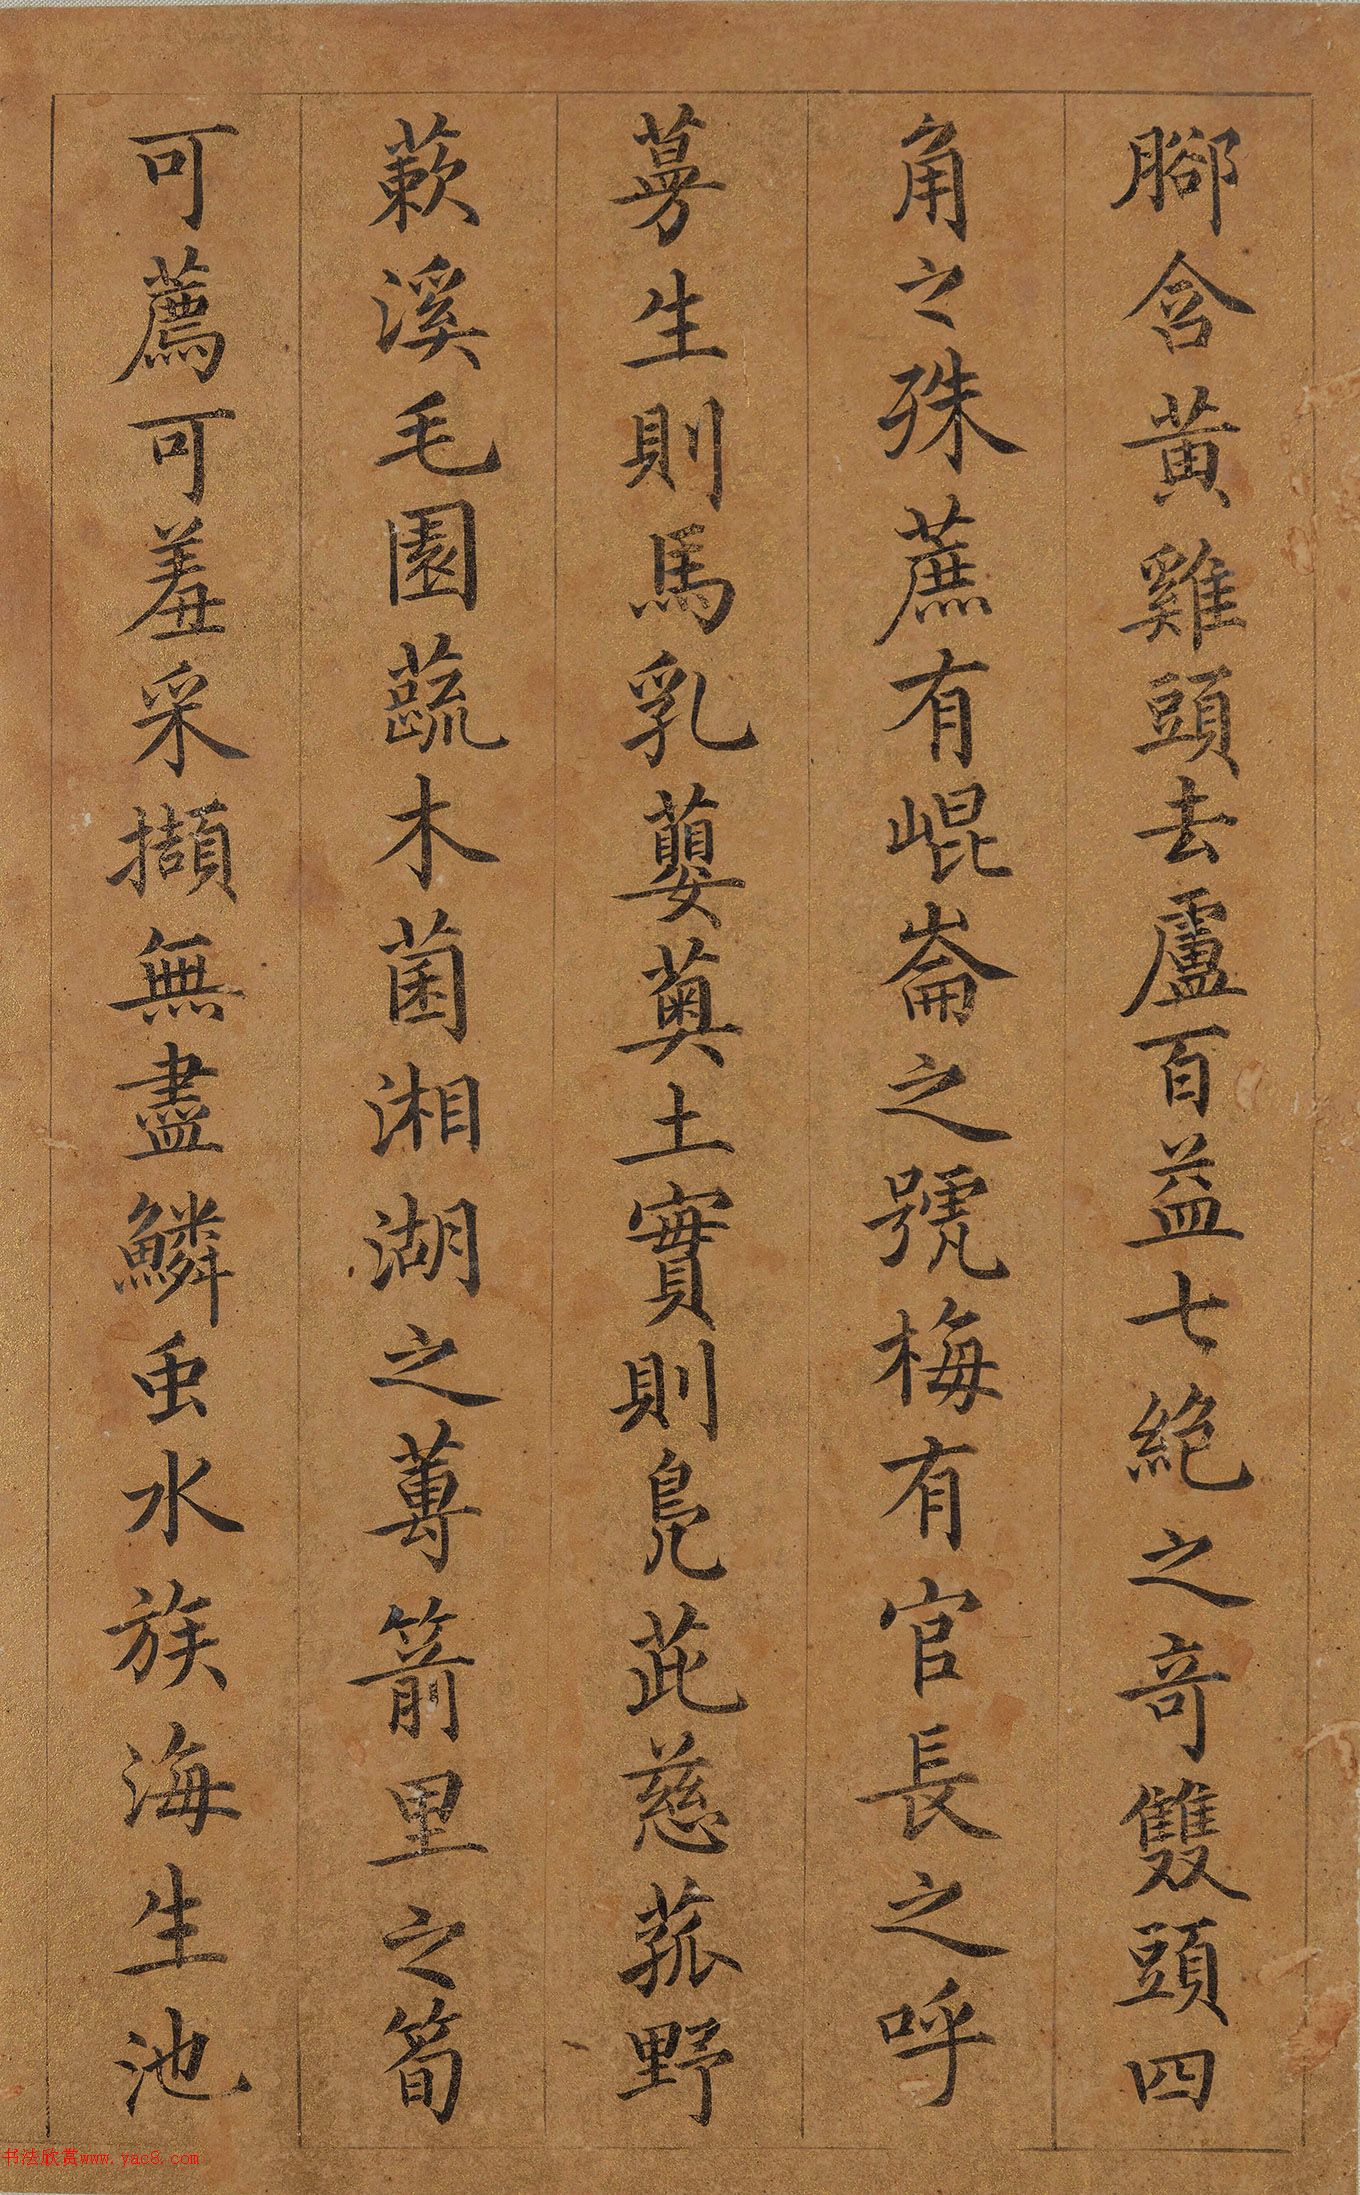 腳含黃雞頭去盧百益七絕之奇雙頭四
角之殊蔗有崐崙之號梅有官長之呼
蔓生則馬乳蘡薁土實則鳧茈慈菰野
蔌溪毛園蔬木菌湘湖之蓴箭里之筍
可薦可羞采擷無盡鱗虫水族海生池
书法欣赏www.yac8.com